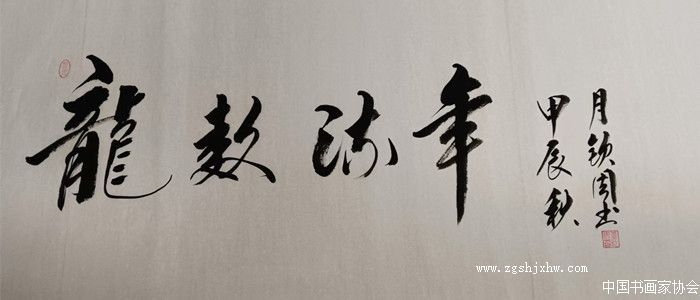 龍 年
甲辰秋
月钦周书
www.zgshjxhw.com
中国书画家协会